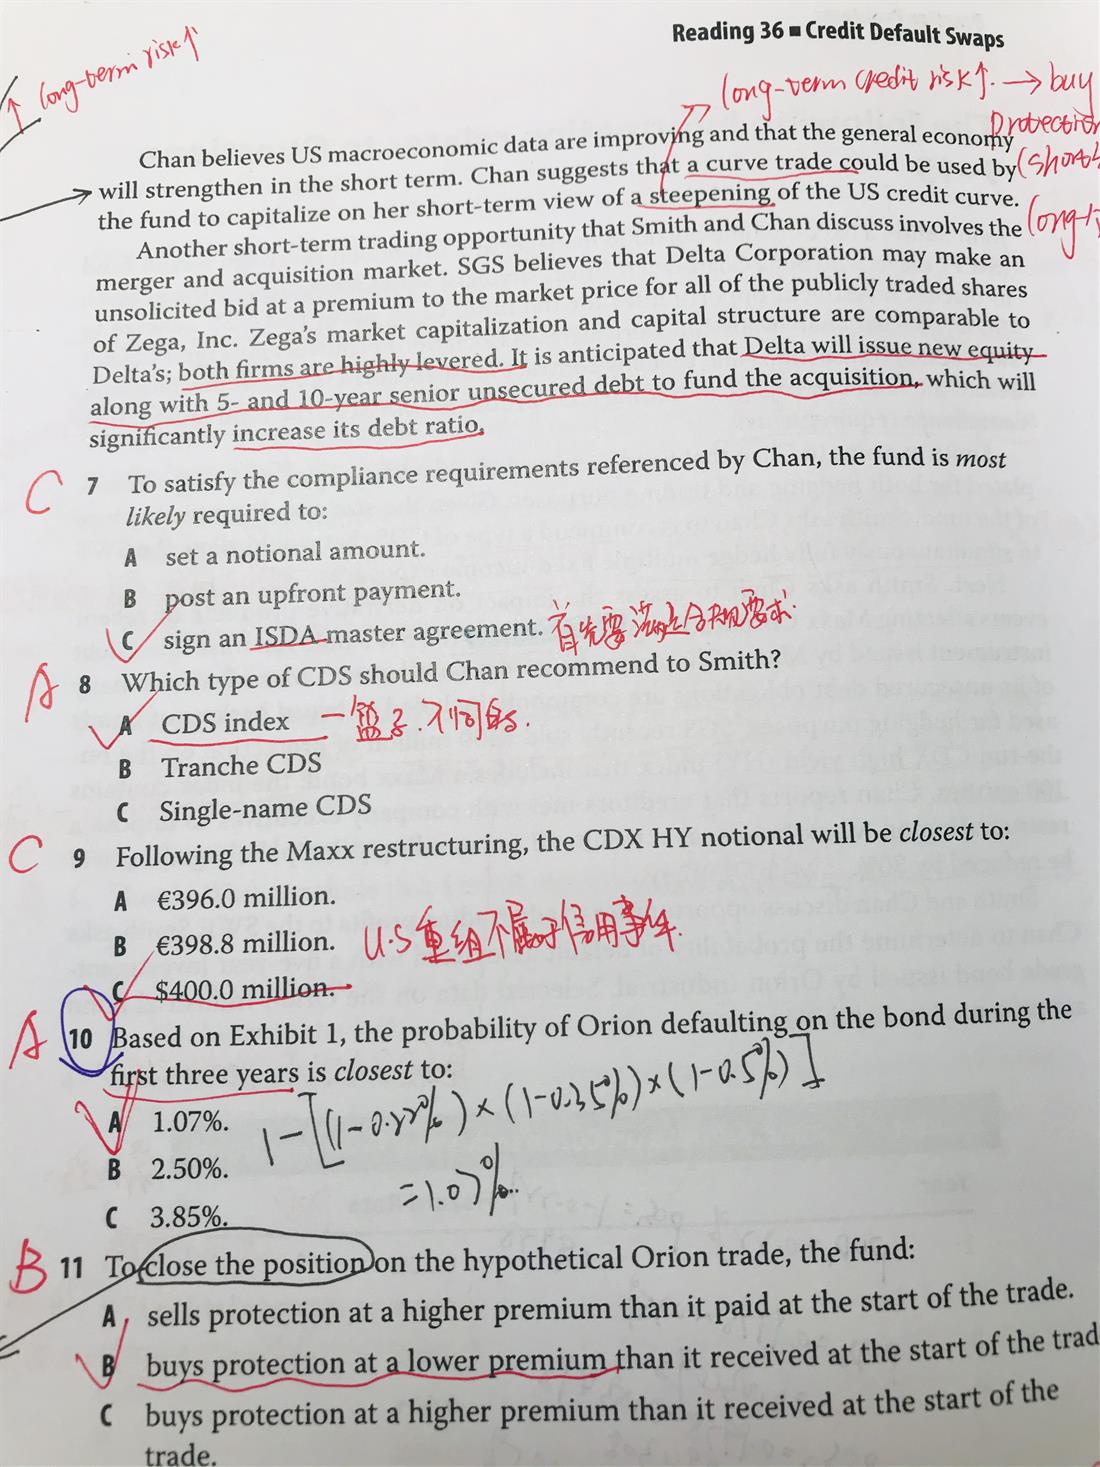 Reading 36 ■ Credit Default Swaps
long-term risk↑
long-term credit risk↑. → buy
protection
Chan believes US macroeconomic data are improving and that the general economy
will strengthen in the short term. Chan suggests that a curve trade could be used by
(short
the fund to capitalize on her short-term view of a steepening of the US credit curve.
Another short-term trading opportunity that Smith and Chan discuss involves the
long-
merger and acquisition market. SGS believes that Delta Corporation may make an
unsolicited bid at a premium to the market price for all of the publicly traded shares
of Zega, Inc. Zega's market capitalization and capital structure are comparable to
Delta's; both firms are highly levered. It is anticipated that Delta will issue new equity
along with 5- and 10-year senior unsecured debt to fund the acquisition, which will
significantly increase its debt ratio.
C 7 To satisfy the compliance requirements referenced by Chan, the fund is most
likely required to:
A set a notional amount.
B post an upfront payment.
C sign an ISDA master agreement. 首先要满足合规要求.
A 8 Which type of CDS should Chan recommend to Smith?
A CDS index 一篮子.不同的.
B Tranche CDS
C Single-name CDS
C 9 Following the Maxx restructuring, the CDX HY notional will be closest to:
A €396.0 million.
B €398.8 million. U.S重组不属于信用事件.
C $400.0 million.
A 10 Based on Exhibit 1, the probability of Orion defaulting on the bond during the
first three years is closest to:
A 1.07%. 1-[(1-0.22%)×(1-0.35%)×(1-0.5%)]
B 2.50%. =1.07%.
C 3.85%.
B 11 To close the position on the hypothetical Orion trade, the fund:
A sells protection at a higher premium than it paid at the start of the trade.
B buys protection at a lower premium than it received at the start of the trad
C buys protection at a higher premium than it received at the start of the
trade.